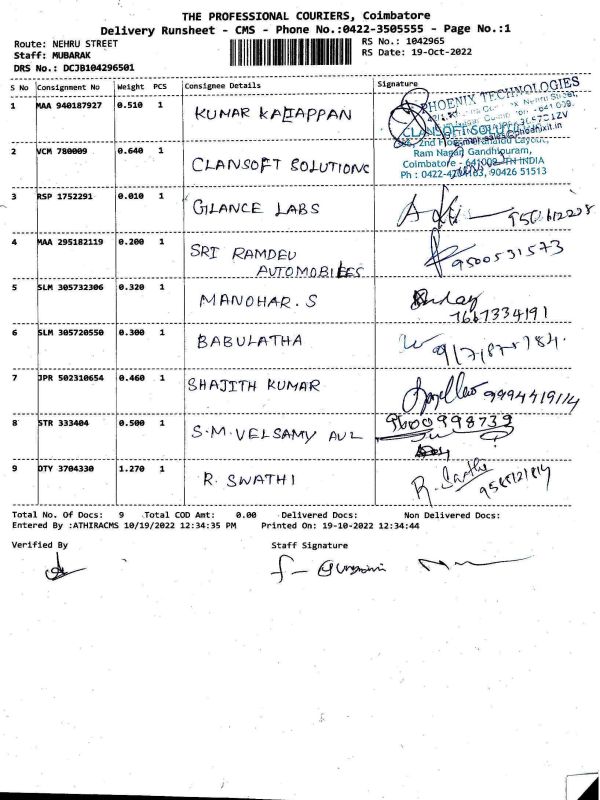 THE PROFESSIONAL COURIERS, Coimbatore
Delivery Runsheet - CMS - Phone No.:0422-3505555 - Page No.:1
Route: NEHRU STREET
RS No.: 1042965
Staff: MUBARAK
RS Date: 19-Oct-2022
DRS No.: DCJB104296501
S No Consignment No Weight PCS Consignee Details Signature
1 MAA 940187927 0.510 1 KUMAR KALIAPPAN
PHOENIX TECHNOLOGIES
CLANSOFT SOLUTIONS
2nd Floor
Ram Nagar, Gandhipuram,
Coimbatore - 641009. TN INDIA
Ph : 0422-4204183, 90426 51513
2 VCM 780009 0.640 1 CLANSOFT SOLUTIONS
3 RSP 1752291 0.010 1 GLANCE LABS
4 MAA 295182119 0.200 1 SRI RAMDEV AUTOMOBILES 9500531573
5 SLM 305732306 0.320 1 MANOHAR.S
7667334191
6 SLM 305720550 0.300 1 BABULATHA
7 JPR 502310654 0.460 1 SHAJITH KUMAR 9994419114
8 STR 333404 0.500 1 S.M.VELSAMY AVL 9600998739
9 DTY 3704330 1.270 1 R. SWATHI
Total No. Of Docs: 9 Total COD Amt: 0.00 Delivered Docs: Non Delivered Docs:
Entered By :ATHIRACMS 10/19/2022 12:34:35 PM Printed On: 19-10-2022 12:34:44
Verified By Staff Signature